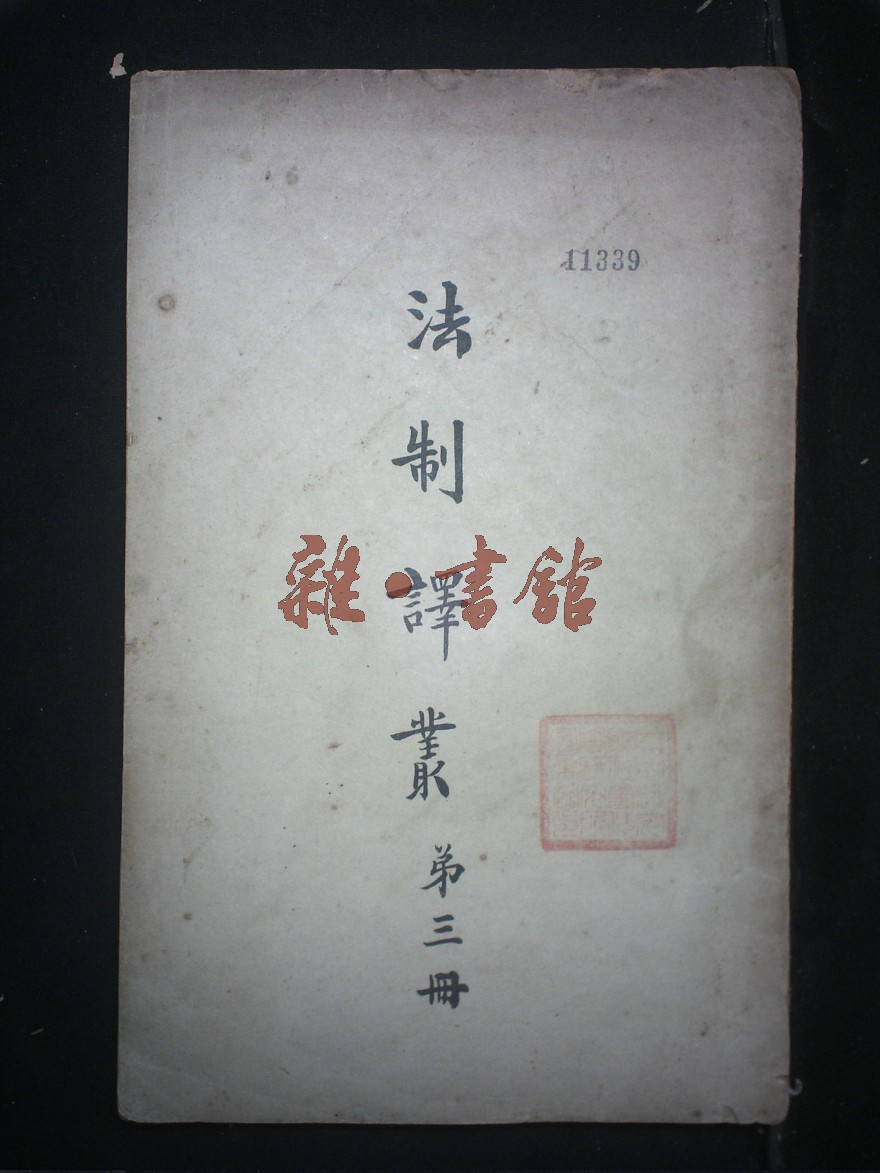 11339
法制譯叢
弟三冊
雜·書館